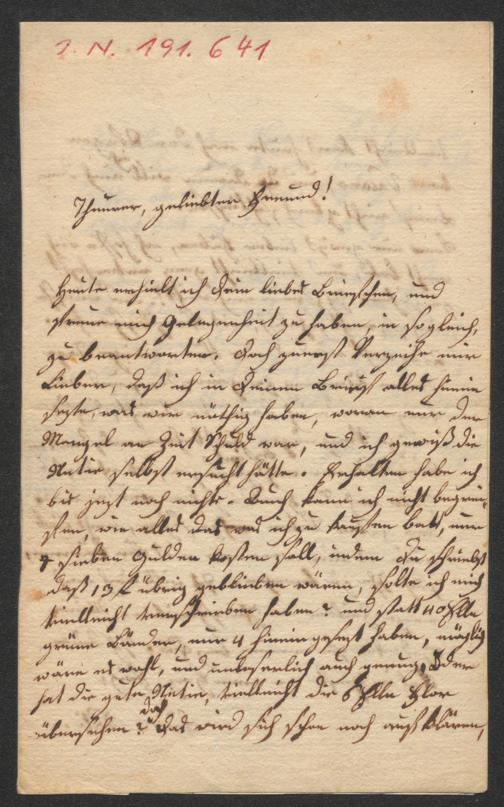 J. N. 191.641
Theurer, geliebter Freund!
Heute erhielt ich dein liebes Briefchen, und
freue mich Gelegenheit zu haben, es so gleich,
zu beantworten. Doch zuerst Verzeihe mir
Lieber, daß ich in Deinem Briefe alles hinein
sezte, was wir nöthig haben, woran nur der
Mangel an Zeit Schuld war, und ich gewiß die
selbst ersucht hätte. Erhalten habe ich
bis jezt noch nichts. Auch kann ich nicht begrei-
fen, wie alles das was ich zu kaufen bath, nur
sieben Gulden kosten soll, indem Du schreibst
daß 13 f übrig geblieben wären, sollte ich mich
vielleicht verschrieben haben? und statt 40 Elle
grüne Bänder, nur 4 hinein gesezt haben, möglich
wäre es wohl, und unleserlich auch genug. Oder
hat die gute vielleicht die 6 Elle Flor
übersehen? doch das wird sich schon noch aufklären,